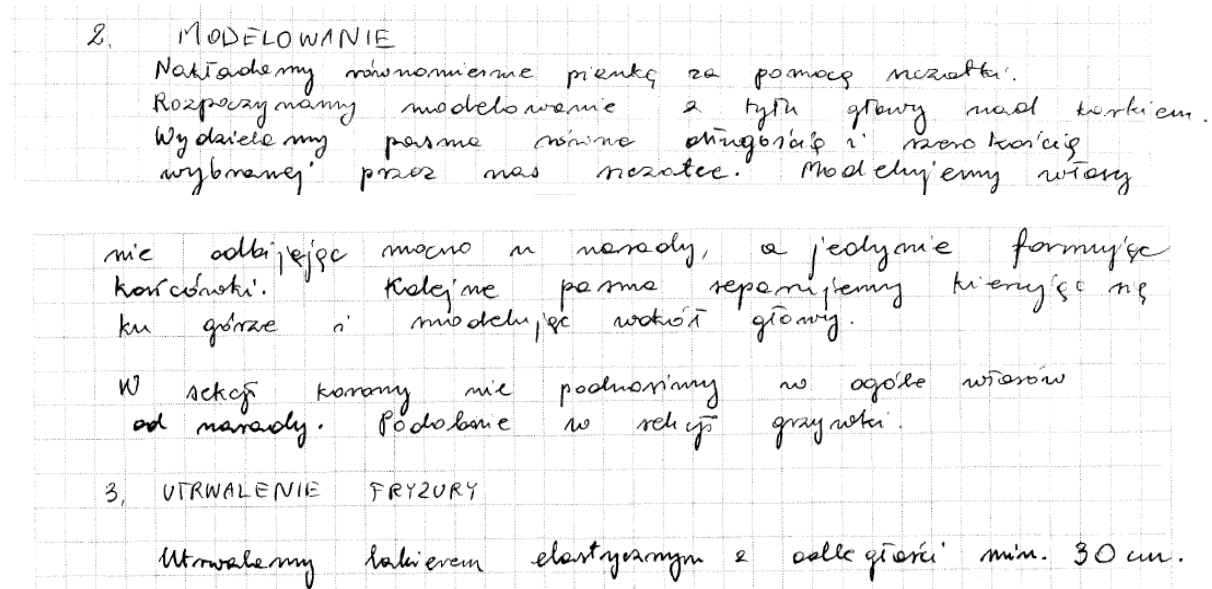 2. MODELOWANIE
Nakładamy równomiernie piankę za pomocą szczotki.
Rozpoczynamy modelowanie z tyłu głowy nad karkiem.
Wydzielamy pasma równe długością i szerokością
wybranej przez nas szczotce. Modelujemy włosy
nie odbijając mocno u nasady, a jedynie formując
końcówki. Kolejne pasma separujemy kierując się
ku górze i modelując wokół głowy.
W sekcji korony nie podnosimy w ogóle włosów
od nasady. Podobnie w sekcji grzywki.
3, UTRWALENIE FRYZURY
Utrwalamy lakierem elastycznym z odległości min. 30 cm.